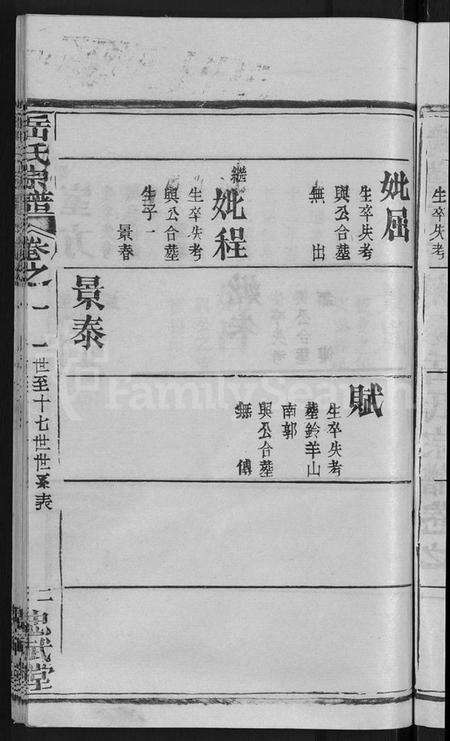 妣屈
生卒失考
與公合墓
無出
繼
妣程
生卒失考
與公合墓
生子一
景春
景泰
賦
生卒失考
墓鈴羊山
南郭
與公合墓
無傳
岳氏宗譜
卷之
一
一世至十七世世系表
二
忠武堂
生卒失考
FamilySearch